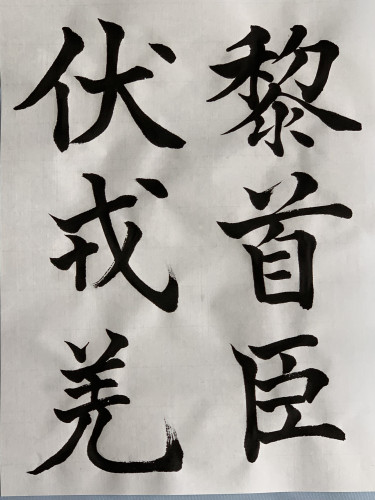 黎首臣
伏戎羌